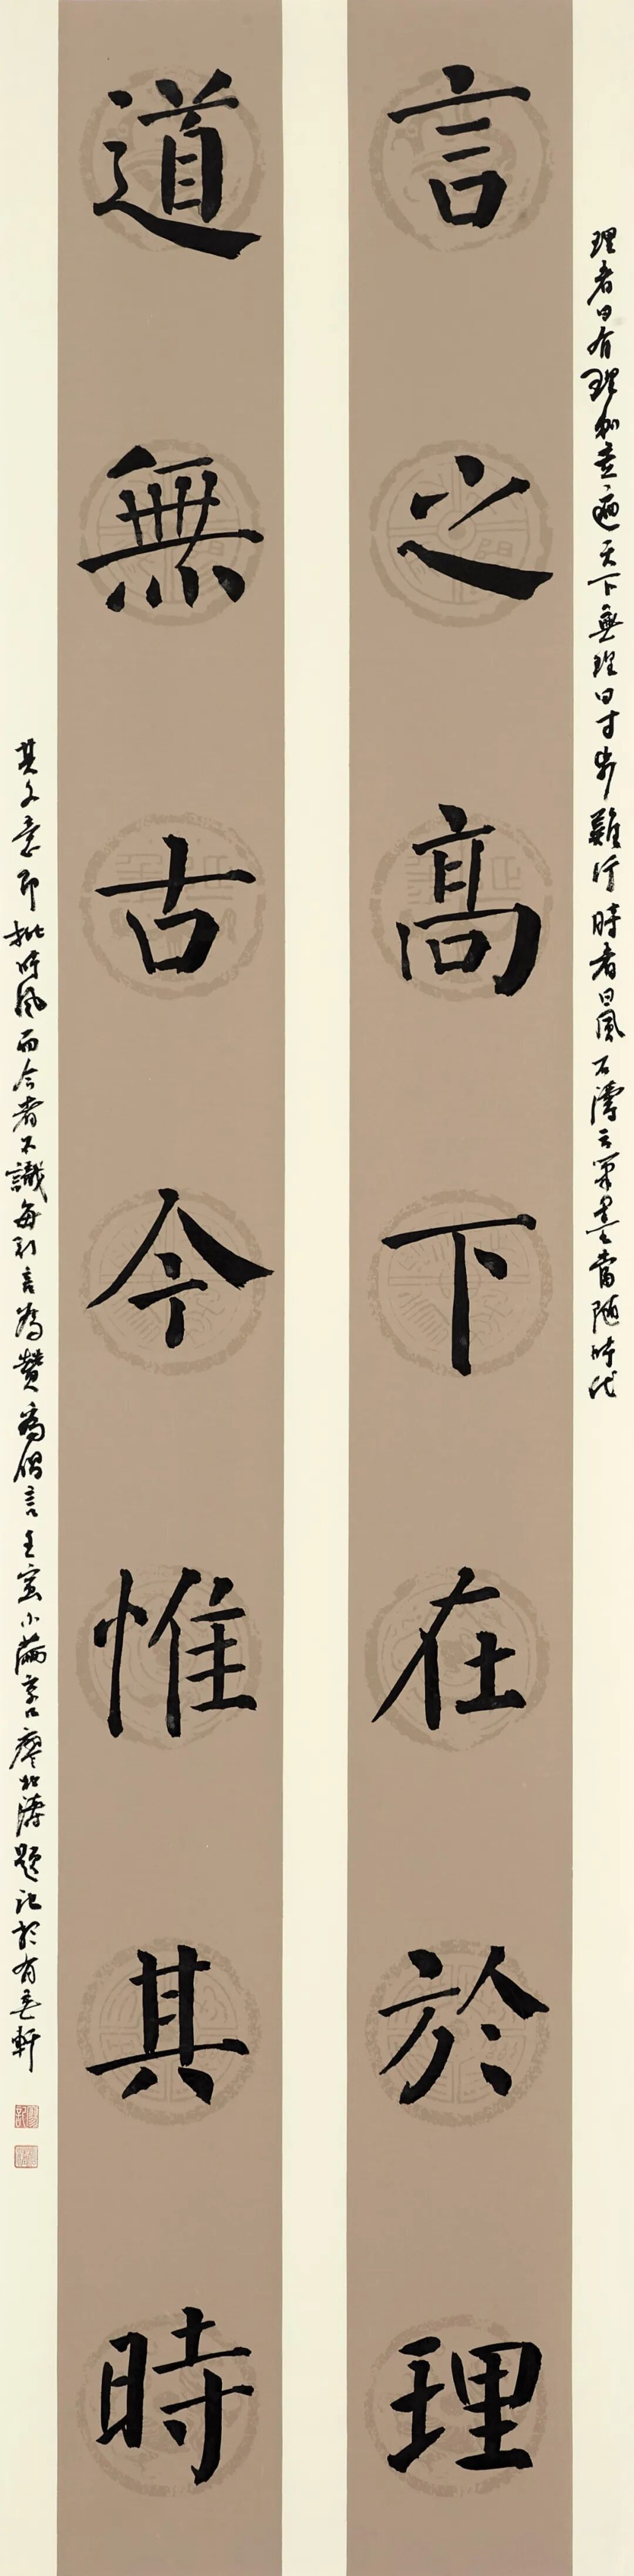 言之高下在於理
道無古今惟其時
理者曰有理走遍天下無理曰寸步難行時者曰風石濤云筆墨當隨時代
其文意即批時風而今者不識每引言為贊為偶言壬寅小滿書口廖北濤題記於有
軒